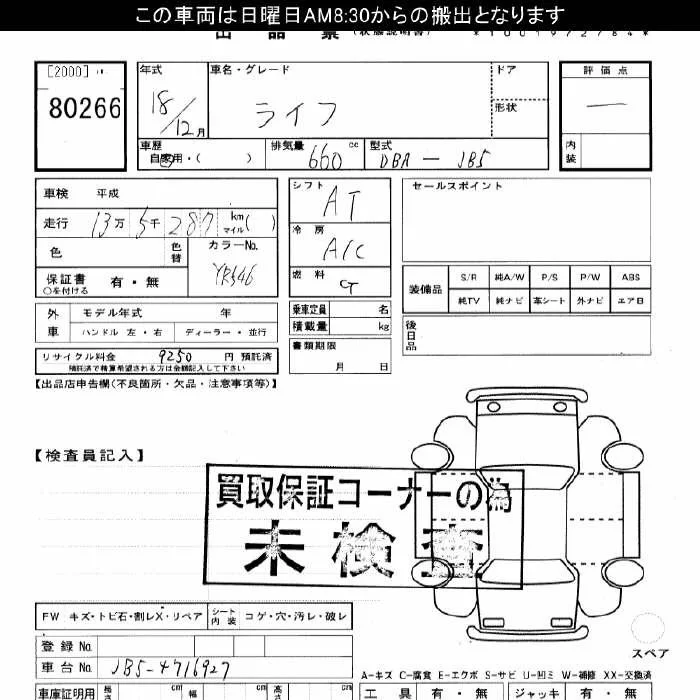 この車両は日曜日AM8:30からの搬出となります
出品票 (状態説明書)
[2000]
80266
年式
18/12月
車名・グレード
ライフ
ドア
形状
評価点
―
内装
車歴
自家用・( )
排気量
660 cc
型式
DBA - JB5
車検 平成
走行 13万 5千 287 km マイル( )
色
色替
カラーNo.
YR546
保証書 有・無
○を付ける
シフト
AT
冷房
A/C
燃料
G
セールスポイント
装備品
S/R 純A/W P/S P/W ABS
純TV 純ナビ 革シート 外ナビ エアB
外車
モデル年式 年
ハンドル 左・右 ディーラー・並行
乗車定員 名
積載量 kg
後日品
リサイクル料金 9250 円 預託済
預託済で精算希望される方は金額記入して下さい
書類期限
月 日
【出品店申告欄(不良箇所・欠品・注意事項等)】
【検査員記入】
買取保証コーナーの為
未検査
FW キズ・トビ石・割レX・リペア
シート内装 コゲ・穴・汚レ・破レ
登録No.
車台No. JB5-4716927
スペア
A-キズ C-腐食 E-エクボ S-サビ U-凹ミ W-補修 XX-交換済
車庫証明用 長さ cm 幅 cm 高さ cm
工具 有・無 ジャッキ 有・無